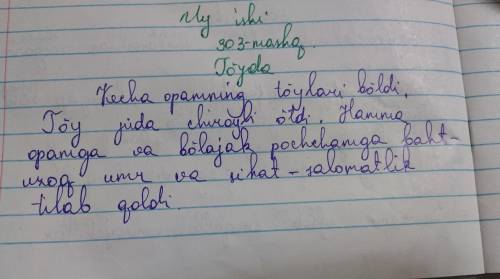 Uy ishi
303-mashq.
Töyda
Kecha opamning töylari böldi.
Töy juda chiroyli ötdi. Hamma
opamga va bölajak pochchamga baht-
uzoq umr va sihat-salomatlik
tilab qoldi.